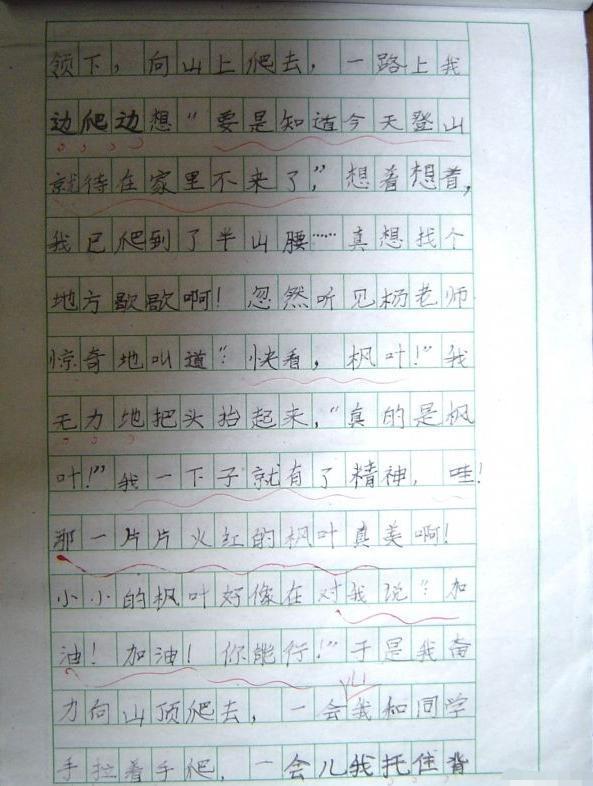 领下，向山上爬去，一路上我
边爬边想“要是知道今天登山
就待在家里不来了，”想着想着，
我已爬到了半山腰……真想找个
地方歇歇啊！忽然听见杨老师
惊奇地叫道：“快看，枫叶！”我
无力地把头抬起来，“真的是枫
叶！”我一下子就有了精神，哇！
那一片片火红的枫叶真美啊！
小小的枫叶好像在对我说：“加
油！加油！你能行！”于是我奋
力向山顶爬去，一会儿我和同学
手拉着手爬，一会儿我托住背